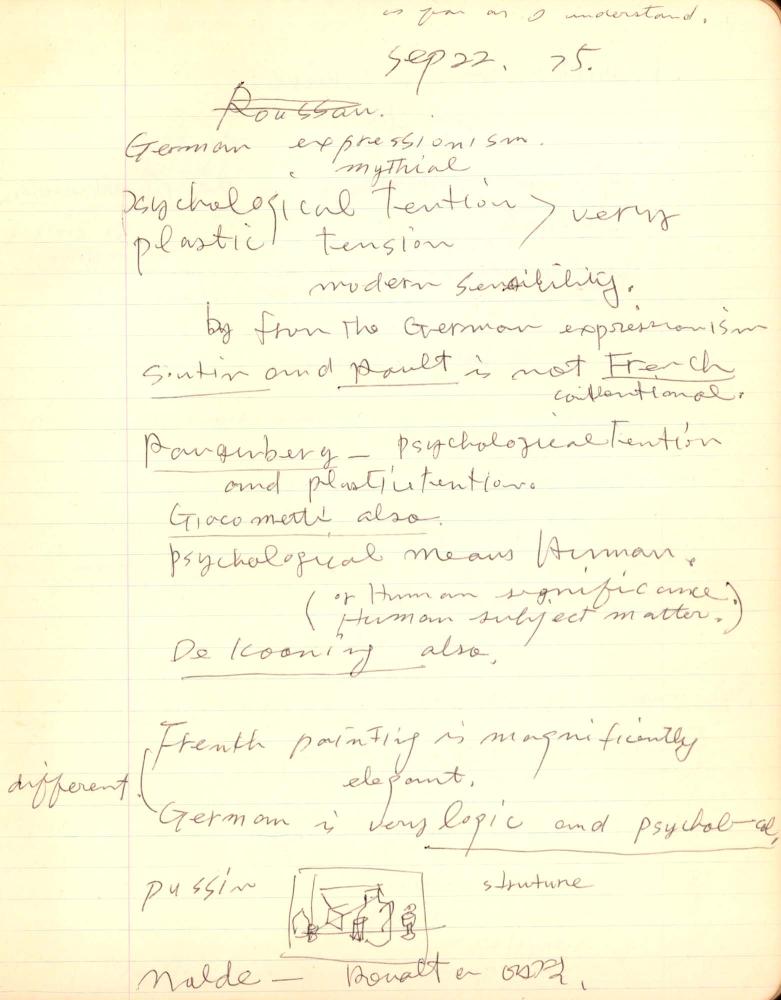 as far as I understand.
Sep 22. 75.
Roussau.
German expressionism.
mythial
psychological Tention > very
plastic tension
modern sensibility.
by from The German expressionism
Sutin and Rault is not French
conventional.
Rausenberg – psychological Tention
and plastic tention.
Giacometti also.
psychological means Human.
(or Human significance.
Human subject matter.)
De Kooning also.
Frenth painting is magnificiently
different. elegant.
German is very logic and psychol-al,
pussin struture
Nolde – Roualt